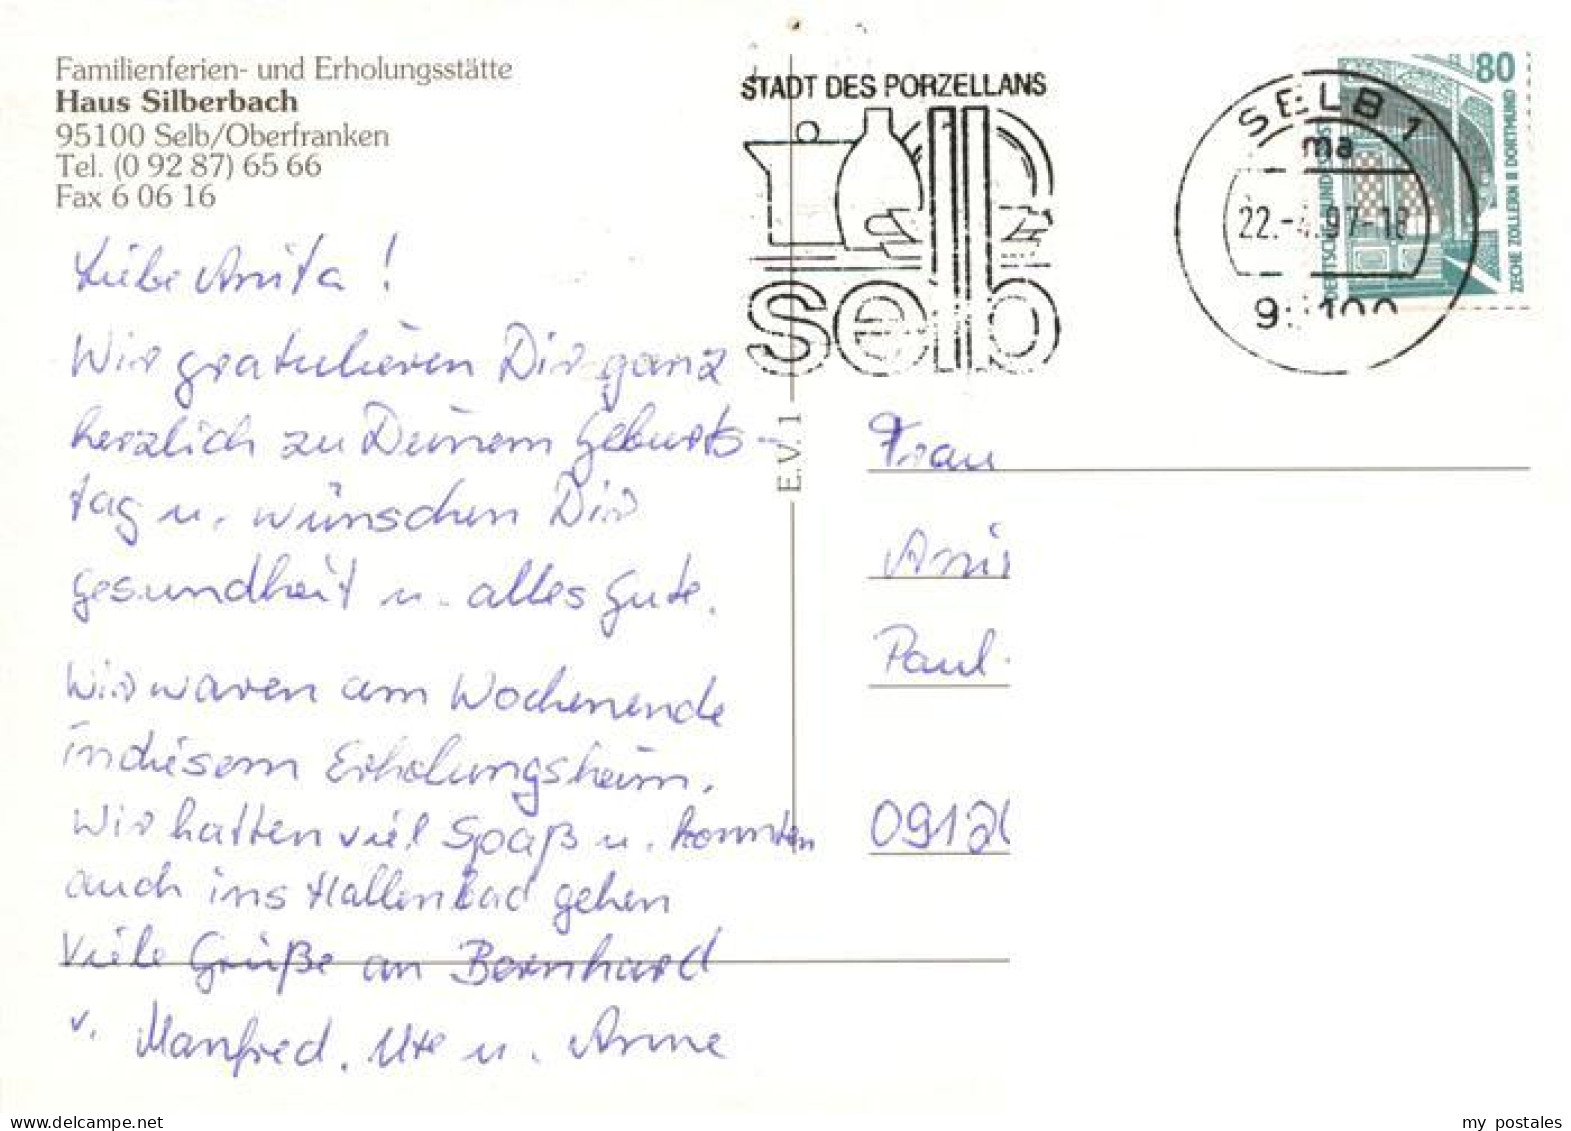 Familienferien- und Erholungsstätte
Haus Silberbach
95100 Selb/Oberfranken
Tel. (0 92 87) 65 66
Fax 6 06 16
Liebe Anita!
Wir gratulieren Dir ganz
herzlich zu Deinem Geburts-
tag u. wünschen Dir
Gesundheit u. alles Gute.
Wir waren am Wochenende
in diesem Erholungsheim.
Wir hatten viel Spaß u. konnten
auch ins Hallenbad gehen
Viele Grüße an Bernhard
v. Manfred, Ute u. Anne
E.V. 1
STADT DES PORZELLANS
Selb
SELB 1
ma
22.-4.97-18
80
DEUTSCHE BUNDESPOST
ZECHE ZOLLERN II DORTMUND
Frau
Ani
Paul-
0912
delcampe.net
my_postales